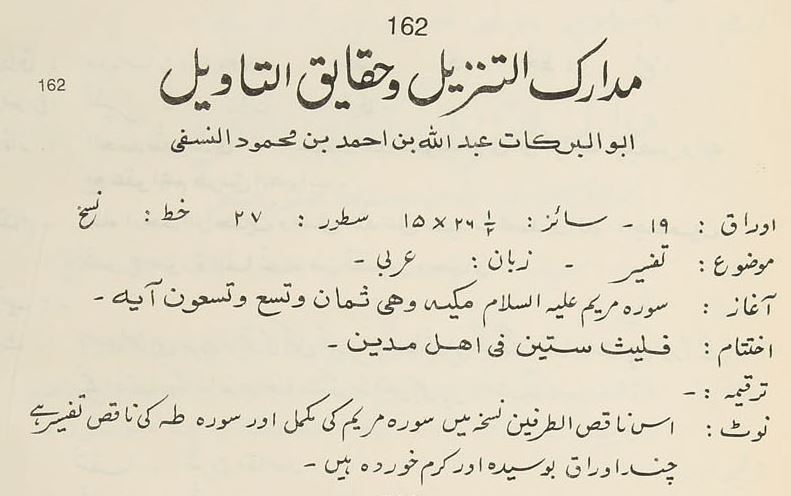 162
162
مدارک التنزیل و حقایق التاویل
ابو البرکات عبد الله بن احمد بن محمود النسفی
اوراق : ۱۹ - سائز : ۲۶ ۱/۲ × ۱۵ سطور : ۲۷ خط : نسخ
موضوع : تفسیر - زبان : عربی -
آغاز : سوره مریم علیه السلام مکیه وهی ثمان وتسع وتسعون آیه -
اختتام : فلیث ستین فی اهل مدین -
ترقیمہ : -
نوٹ : اس ناقص الطرفین نسخہ میں سورہ مریم کی مکمل اور سورہ طہ کی ناقص تفسیر ہے
چند اوراق بوسیدہ اور کرم خوردہ ہیں -